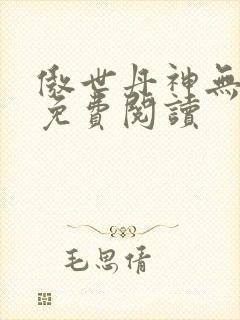 傲世丹神無
免費閱讀
毛思倩